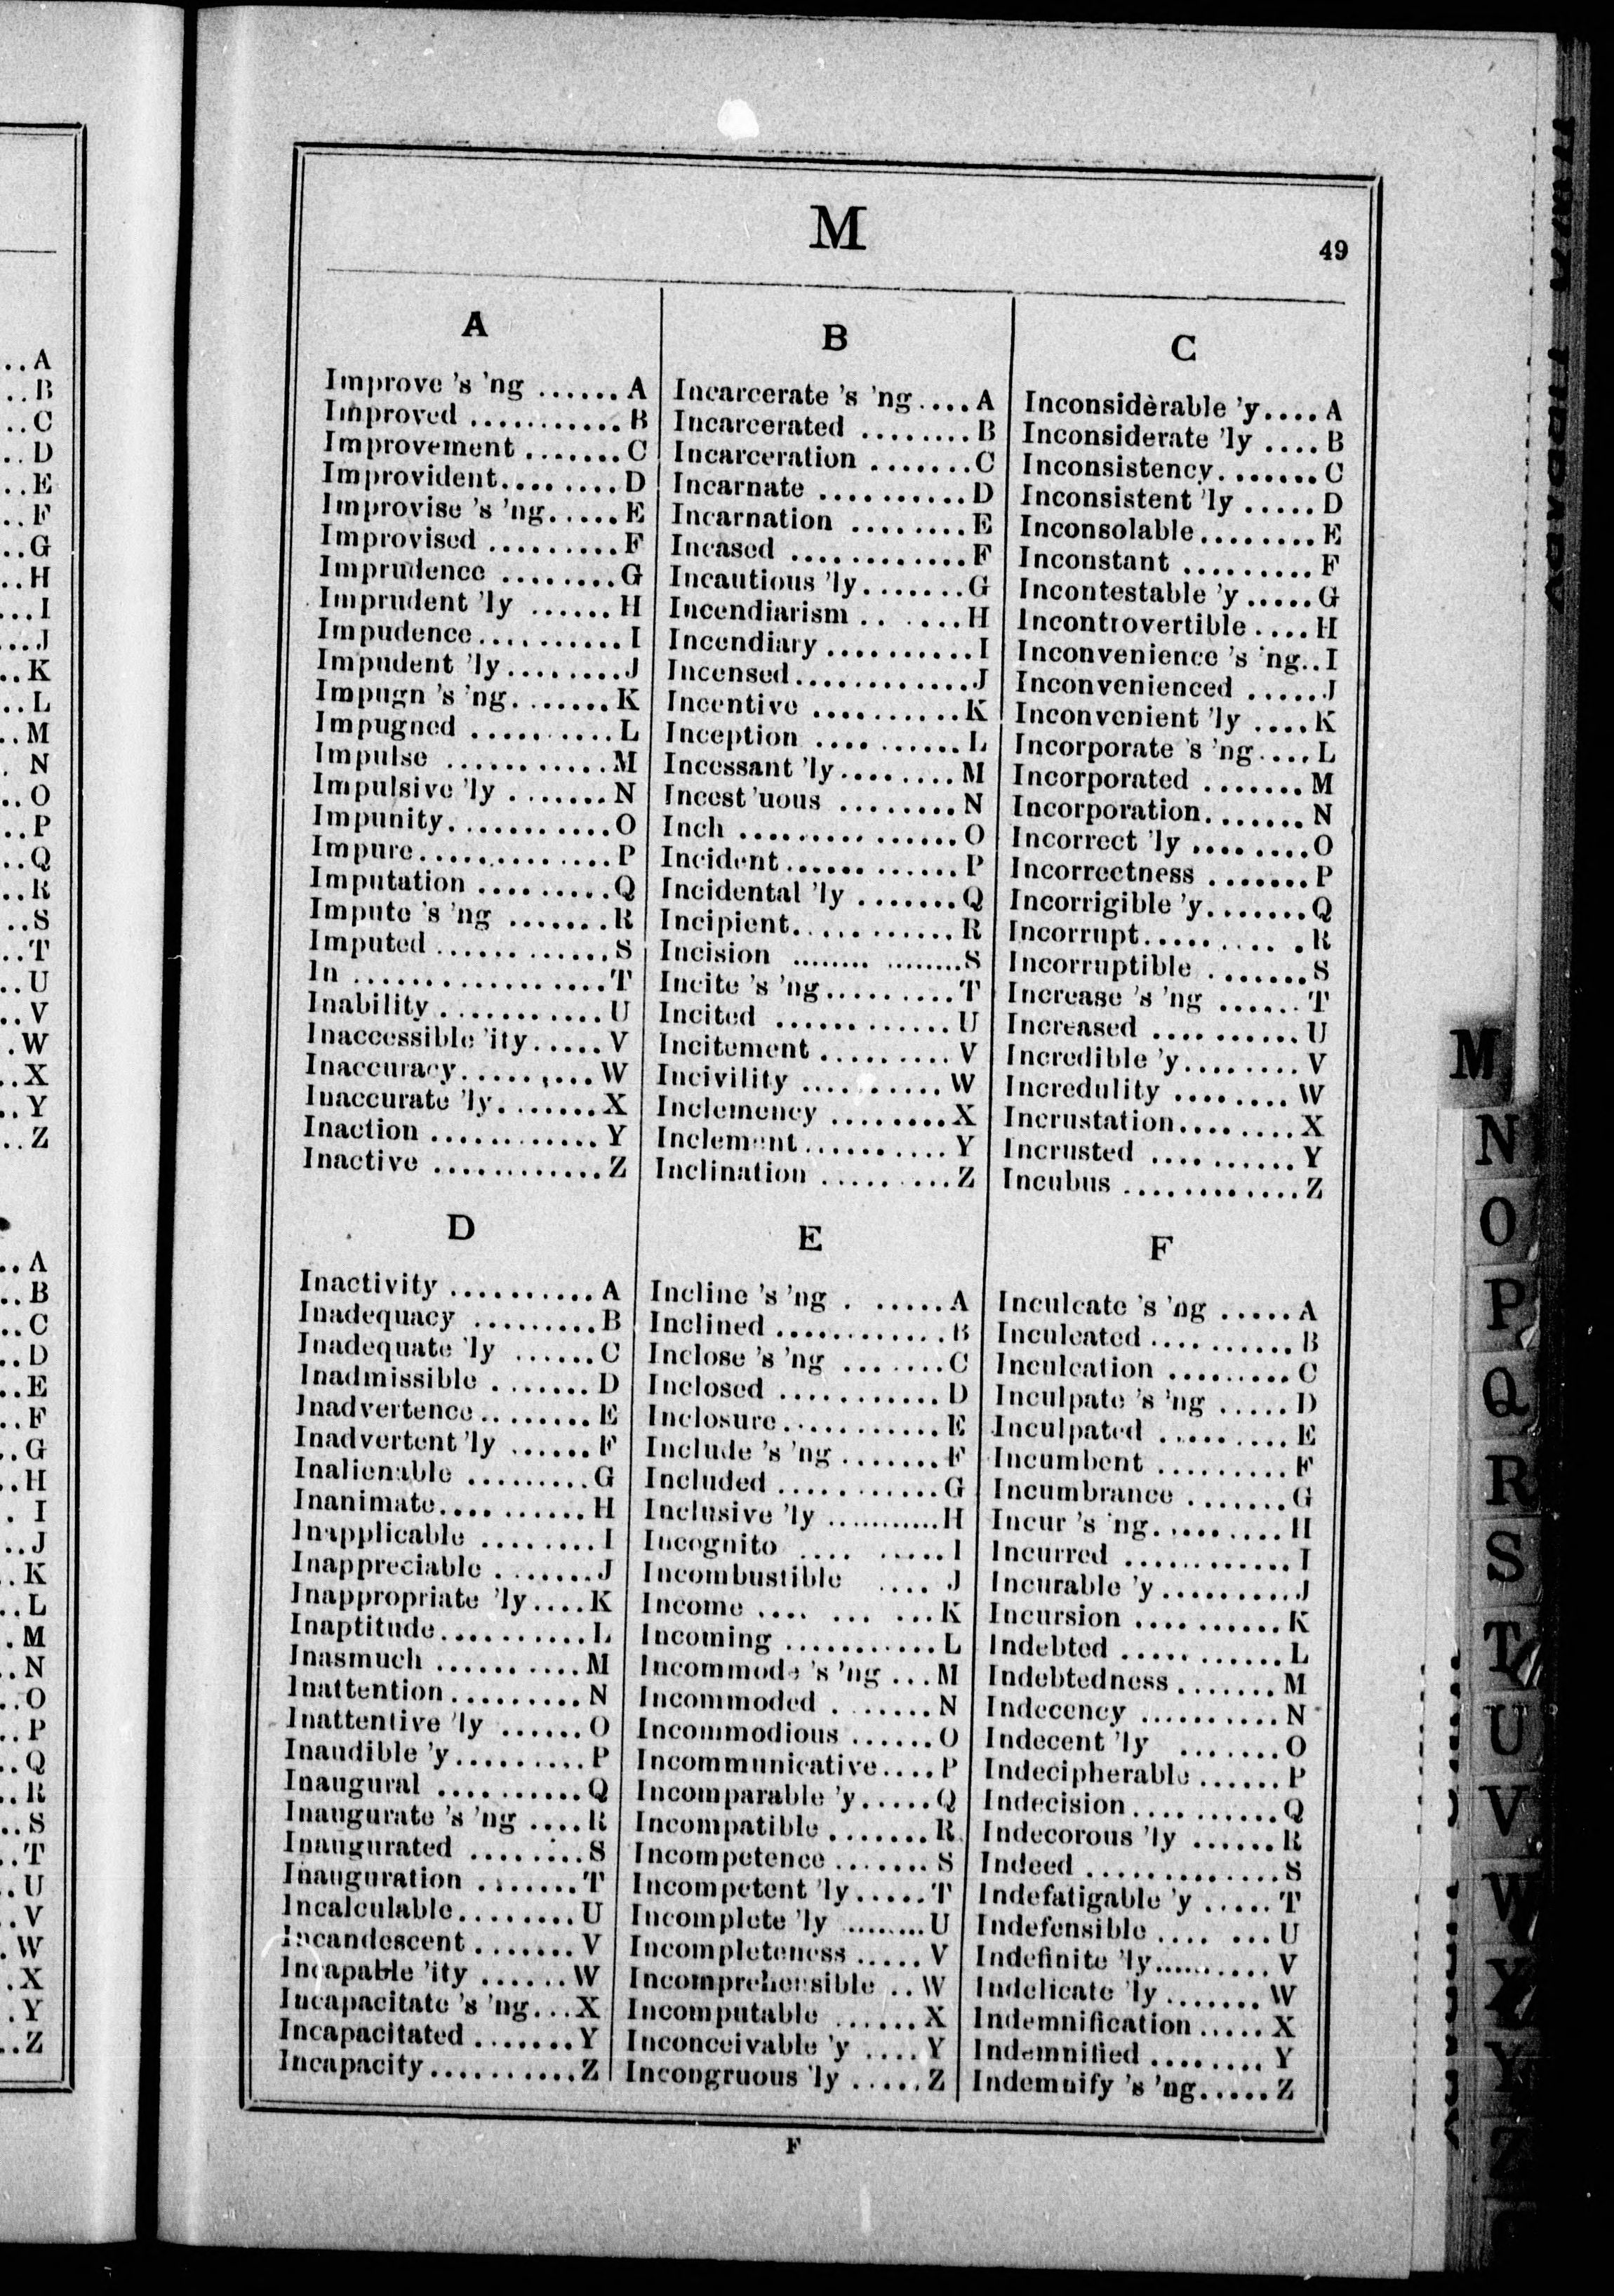 M
49
A
Improve 's 'ng ...... A
Improved ........... B
Improvement ....... C
Improvident ........ D
Improvise 's 'ng ..... E
Improvised ......... F
Imprudence ........ G
Imprudent 'ly ...... H
Impudence ........... I
Impudent 'ly ........ J
Impugn 's 'ng ....... K
Impugned .......... L
Impulse ........... M
Impulsive 'ly ....... N
Impunity ............ O
Impure .............. P
Imputation ......... Q
Impute 's 'ng ....... R
Imputed ............ S
In .................. T
Inability ........... U
Inaccessible 'ity ..... V
Inaccuracy ......... W
Inaccurate 'ly ....... X
Inaction ............ Y
Inactive ............ Z
B
Incarcerate 's 'ng .... A
Incarcerated ........ B
Incarceration ....... C
Incarnate .......... D
Incarnation ........ E
Incased ............ F
Incautious 'ly ....... G
Incendiarism ...... H
Incendiary .......... I
Incensed ............ J
Incentive .......... K
Inception .......... L
Incessant 'ly ........ M
Incest 'uous ........ N
Inch ............... O
Incident ............ P
Incidental 'ly ....... Q
Incipient ............ R
Incision ................ S
Incite 's 'ng ......... T
Incited ............ U
Incitement ......... V
Incivility .......... W
Inclemency ........ X
Inclement .......... Y
Inclination ......... Z
C
Inconsidèrable 'y .... A
Inconsiderate 'ly .... B
Inconsistency ....... C
Inconsistent 'ly ..... D
Inconsolable ........ E
Inconstant ......... F
Incontestable 'y ..... G
Incontrovertible .... H
Inconvenience 's 'ng .. I
Inconvenienced ...... J
Inconvenient 'ly .... K
Incorporate 's 'ng .... L
Incorporated ....... M
Incorporation ....... N
Incorrect 'ly ........ O
Incorrectness ....... P
Incorrigible 'y ....... Q
Incorrupt .......... R
Incorruptible ....... S
Increase 's 'ng ...... T
Increased .......... U
Incredible 'y ........ V
Incredulity ........ W
Incrustation ........ X
Incrusted .......... Y
Incubus ............ Z
D
Inactivity .......... A
Inadequacy ......... B
Inadequate 'ly ...... C
Inadmissible ....... D
Inadvertence ........ E
Inadvertent 'ly ...... F
Inalienable ......... G
Inanimate .......... H
Inapplicable ........ I
Inappreciable ....... J
Inappropriate 'ly .... K
Inaptitude .......... L
Inasmuch .......... M
Inattention ......... N
Inattentive 'ly ...... O
Inaudible 'y ......... P
Inaugural .......... Q
Inaugurate 's 'ng .... R
Inaugurated ........ S
Inauguration ....... T
Incalculable ........ U
Incandescent ....... V
Incapable 'ity ...... W
Incapacitate 's 'ng ... X
Incapacitated ....... Y
Incapacity .......... Z
E
Incline 's 'ng . ..... A
Inclined ............ B
Inclose 's 'ng ....... C
Inclosed ........... D
Inclosure ........... E
Include 's 'ng ....... F
Included ........... G
Inclusive 'ly ........... H
Incognito .... ..... I
Incombustible .... J
Income .... ... ... K
Incoming ........... L
Incommode 's 'ng ... M
Incommoded . ...... N
Incommodious ...... O
Incommunicative .... P
Incomparable 'y ..... Q
Incompatible ....... R
Incompetence ....... S
Incompetent 'ly ..... T
Incomplete 'ly ........ U
Incompleteness ..... V
Incomprehensible .. W
Incomputable ...... X
Inconceivable 'y .... Y
Incongruous 'ly ..... Z
F
Inculcate 's 'ng ..... A
Inculcated .......... B
Inculcation ......... C
Inculpate 's 'ng ..... D
Inculpated ......... E
Incumbent ......... F
Incumbrance ....... G
Incur 's 'ng ......... H
Incurred ............ I
Incurable 'y .......... J
Incursion .......... K
Indebted ........... L
Indebtedness ....... M
Indecency .......... N
Indecent 'ly ....... O
Indecipherable ...... P
Indecision .......... Q
Indecorous 'ly ...... R
Indeed .............. S
Indefatigable 'y ..... T
Indefensible .... ... U
Indefinite 'ly .......... V
Indelicate 'ly ....... W
Indemnification ..... X
Indemnified ........ Y
Indemnify 's 'ng ..... Z
F
..A
..B
..C
..D
..E
..F
..G
..H
...I
...J
..K
..L
..M
. N
..O
..P
..Q
..R
..S
..T
..U
..V
.W
..X
..Y
..Z
..A
..B
..C
..D
..E
..F
..G
..H
. I
..J
..K
..L
.M
..N
..O
..P
..Q
..R
..S
..T
..U
..V
.W
.X
.Y
..Z
M
N
O
P
Q
R
S
T
U
V
W
X
Y
Z